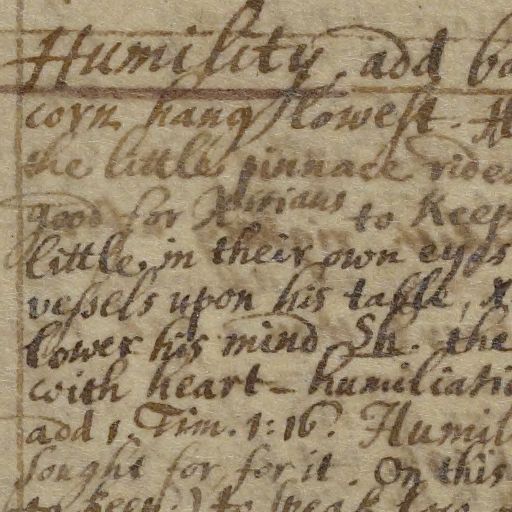 Humility, add
corn hang lowest.
the little pinnace rides
good for Xtians to Keep
little in their own eyes
vessels upon his table,
lower his mind Sh. the
with heart-humiliati
add 1. Tim. 1:16. Humil
sought for for it. On this
to speak